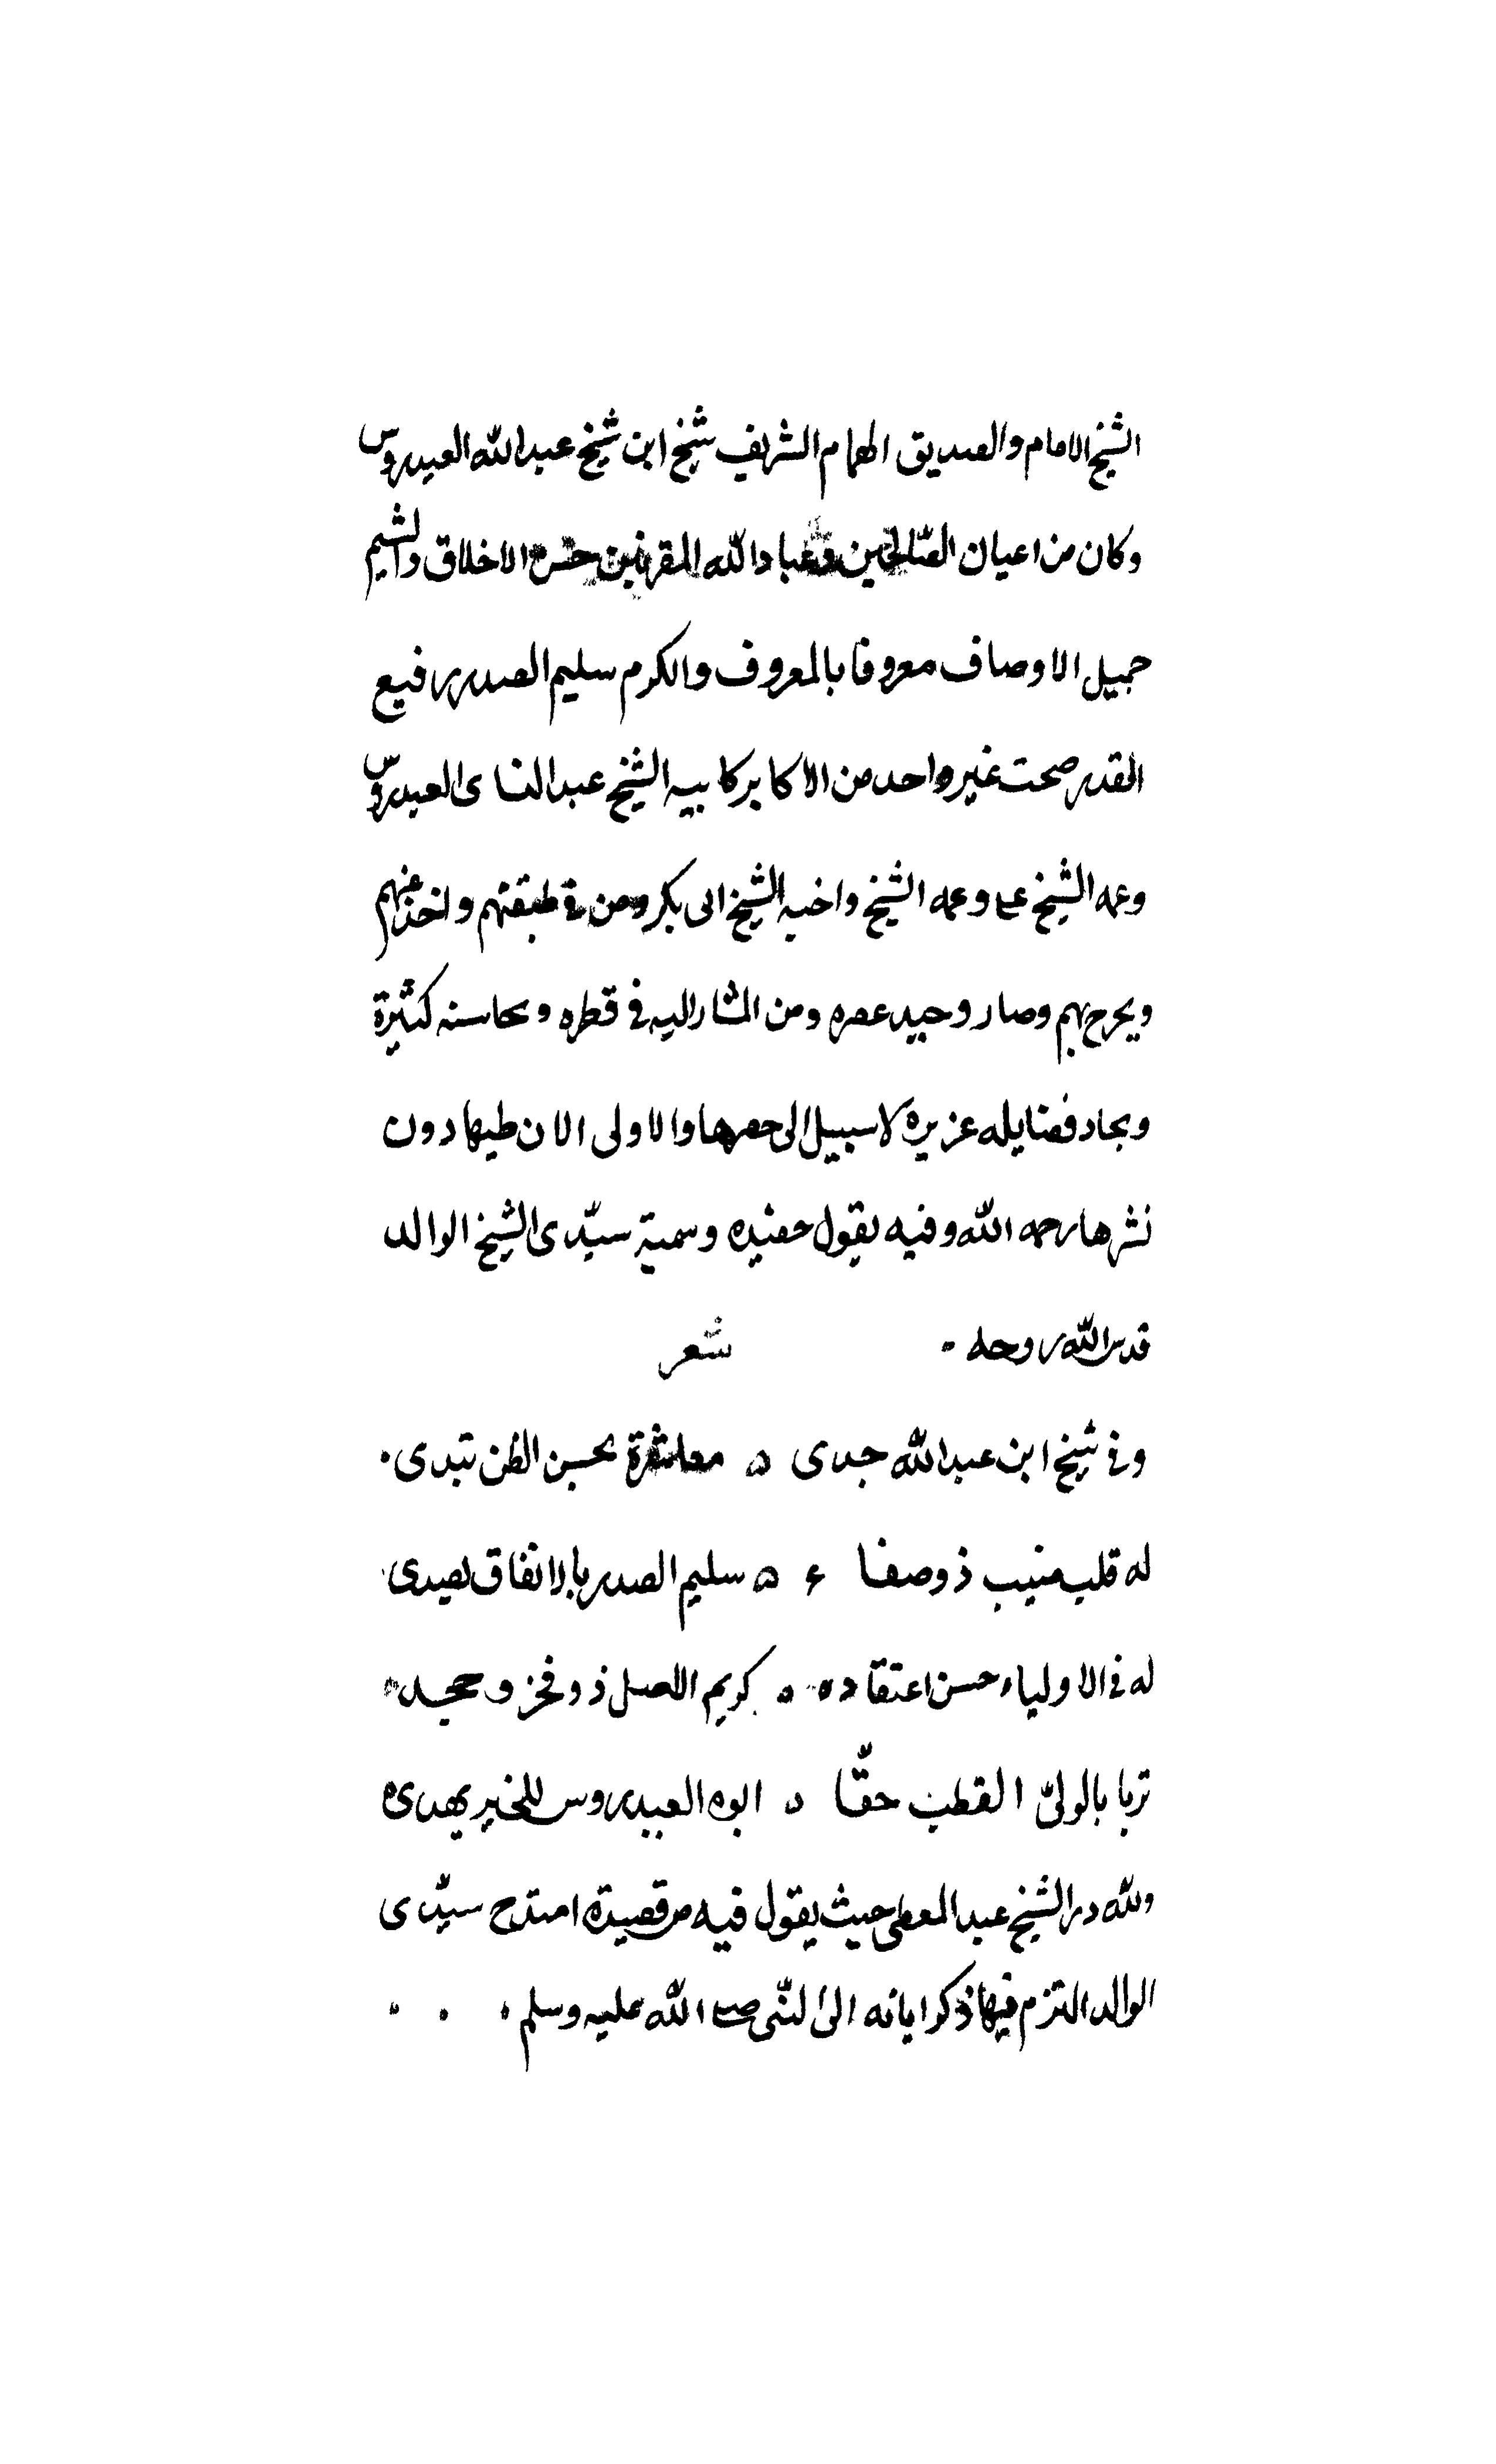 الشيخ الامام والصديق الهمام الشريف شيخ ابن شيخ عبد الله العيدروس
وكان من اعيان الصّالحين وعباد الله المقربين حسن الاخلاق والشيم
جميل الاوصاف معروفا بالمعروف والكرم سليم الصدر رفيع
القدر صحت غير واحد من الاكابر كابيه الشيخ عبد العيدروس
وعمه الشيخ على وعمه الشيخ واخيه الشيخ ابى بكر ومن فى طبقتهم واخذ عنهم
ويخرج بهم وصار وحيد عصره ومن المشار اليه فى قطره ومحاسنه كثيرة
وبحار فضايله غزيرة لا سبيل الى حصرها والاولى الان طيها دون
نشرها رحمه الله وفيه يقول حفيده وسميه سيّدى الشيخ الوالد
قدس الله روحه ٠ شعر
وفى شيخ ابن عبد الله جدى ه معاشرة بحسن الظن تبدى ٠
له قلب منيب ذو صفا ء ه سليم الصدر بالانفاق يصدى
له فى الاولياء حسن اعتقاده ه كريم الاصل ذو فخر ومجد ه
تربا بالولىّ القطب حقّا ه ابوه العيدروس للخير يهدى ه
ولله در الشيخ عبد المعطى حيث يقول فيه من قصيدة امتدح سيّدى
الوالد التزم فيها ذكر ابائه الى النّبى صلى الله عليه وسلم ٠ ٠ ٠